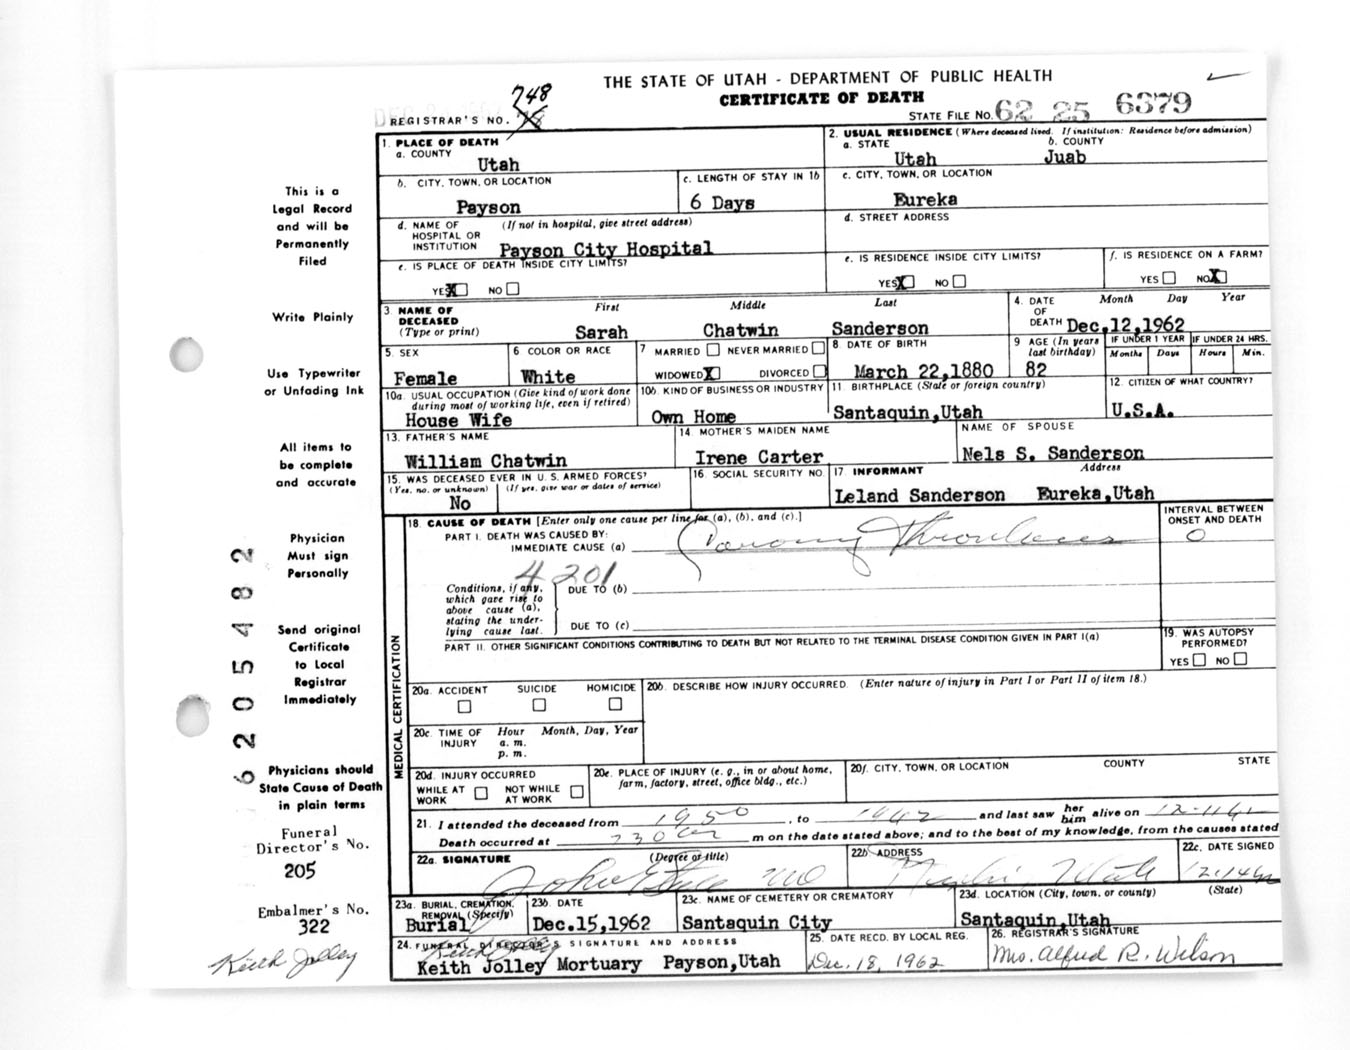 THE STATE OF UTAH - DEPARTMENT OF PUBLIC HEALTH
CERTIFICATE OF DEATH
REGISTRAR'S NO. 748
STATE FILE NO. 62 25 6379
1. PLACE OF DEATH
a. COUNTY
Utah
2. USUAL RESIDENCE (Where deceased lived. If institution: Residence before admission)
a. STATE b. COUNTY
Utah Juab
b. CITY, TOWN, OR LOCATION
Payson
c. LENGTH OF STAY IN 1b
6 Days
c. CITY, TOWN, OR LOCATION
Eureka
d. NAME OF HOSPITAL OR INSTITUTION (If not in hospital, give street address)
Payson City Hospital
d. STREET ADDRESS
e. IS PLACE OF DEATH INSIDE CITY LIMITS?
YES X NO
e. IS RESIDENCE INSIDE CITY LIMITS?
YES X NO
f. IS RESIDENCE ON A FARM?
YES NO X
3. NAME OF DECEASED (Type or print)
First Middle Last
Sarah Chatwin Sanderson
4. DATE OF DEATH Month Day Year
Dec,12,1962
5. SEX
Female
6 COLOR OR RACE
White
7 MARRIED NEVER MARRIED
WIDOWED X DIVORCED
8. DATE OF BIRTH
March 22,1880
9 AGE (In years last birthday)
82
IF UNDER 1 YEAR
Months Days
IF UNDER 24 HRS.
Hours Min.
10a. USUAL OCCUPATION (Give kind of work done during most of working life, even if retired)
House Wife
10b. KIND OF BUSINESS OR INDUSTRY
Own Home
11. BIRTHPLACE (State or foreign country)
Santaquin,Utah
12. CITIZEN OF WHAT COUNTRY?
U.S.A.
13. FATHER'S NAME
William Chatwin
14. MOTHER'S MAIDEN NAME
Irene Carter
NAME OF SPOUSE
Nels S. Sanderson
15. WAS DECEASED EVER IN U. S. ARMED FORCES?
(Yes, no, or unknown) (If yes, give war or dates of service)
No
16. SOCIAL SECURITY NO.
17. INFORMANT Address
Leland Sanderson Eureka,Utah
MEDICAL CERTIFICATION
18. CAUSE OF DEATH [Enter only one cause per line for (a), (b), and (c).]
PART I. DEATH WAS CAUSED BY:
IMMEDIATE CAUSE (a) Coronary Thrombosis
INTERVAL BETWEEN ONSET AND DEATH
0
4201
Conditions, if any, which gave rise to above cause (a), stating the under-lying cause last.
DUE TO (b)
DUE TO (c)
PART II. OTHER SIGNIFICANT CONDITIONS CONTRIBUTING TO DEATH BUT NOT RELATED TO THE TERMINAL DISEASE CONDITION GIVEN IN PART I(a)
19. WAS AUTOPSY PERFORMED?
YES NO
20a. ACCIDENT SUICIDE HOMICIDE
20b. DESCRIBE HOW INJURY OCCURRED. (Enter nature of injury in Part I or Part II of item 18.)
20c. TIME OF INJURY Hour Month, Day, Year
a. m.
p. m.
20d. INJURY OCCURRED
WHILE AT WORK NOT WHILE AT WORK
20e. PLACE OF INJURY (e. g., in or about home, farm, factory, street, office bldg., etc.)
20f. CITY, TOWN, OR LOCATION COUNTY STATE
21. I attended the deceased from 1950, to 1962 and last saw her him alive on 12-11-62
Death occurred at 730 m on the date stated above; and to the best of my knowledge, from the causes stated
22a. SIGNATURE (Degree or title)
MD
22b ADDRESS
Utah
22c. DATE SIGNED
23a. BURIAL, CREMATION, REMOVAL (Specify)
Burial
23b. DATE
Dec.15,1962
23c. NAME OF CEMETERY OR CREMATORY
Santaquin City
23d. LOCATION (City, town, or county) (State)
Santaquin,Utah
24. FUNERAL DIRECTOR'S SIGNATURE AND ADDRESS
Keith Jolley
Keith Jolley Mortuary Payson,Utah
25. DATE RECD. BY LOCAL REG.
Dec. 18, 1962
26. REGISTRAR'S SIGNATURE
Mrs. Alfred R. Wilson
This is a
Legal Record
and will be
Permanently
Filed
Write Plainly
Use Typewriter
or Unfading Ink
All items to
be complete
and accurate
Physician
Must sign
Personally
Send original
Certificate
to Local
Registrar
Immediately
Physicians should
State Cause of Death
in plain terms
Funeral
Director's No.
205
Embalmer's No.
322
Keith Jolley
6205482